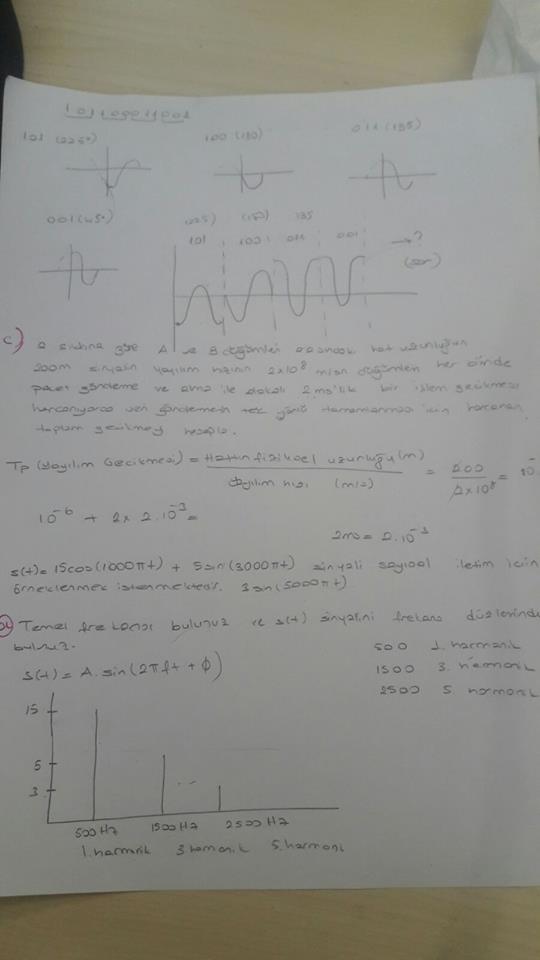 101100011001
101 (225°) 100 (180) 011 (135)
001 (45°) (225) (180) 135
101 100 011 001 → ?
(sor)
c) a şıkkına göre A ve B düğümleri arasındaki hat uzunluğun
200m sinyalin yayılım hızının 2x10⁸ m/sn düğümlerin her birinde
paket gönderme ve alma ile 2ms'lik bir işlem gecikmesi
harcanıyorsa veri göndermenin tek yönlü tamamlanması için harcanan
toplam gecikmeyi hesapla.
Tp (Yayılım Gecikmesi) = Hattın fiziksel uzunluğu (m) = 200 = 10⁻
Yayılım hızı (m/s) 2x10⁸
10⁻⁶ + 2x 2.10⁻³ =
2ms = 2.10⁻³
s(t) = 15cos(1000πt) + 5sin(3000πt) sinyali sayısal iletim için
örneklenmek istenmektedir. 3sin(5000πt)
Temel frekansı bulunuz ve s(t) sinyalini frekans düzleminde
bulunuz.
500 1. harmonik
s(t) = A.sin(2πft + φ)
1500 3. harmonik
2500 5. harmonik
15
5
3
500Hz 1500Hz 2500Hz
1.harmonik 3.harmonik 5.harmoni